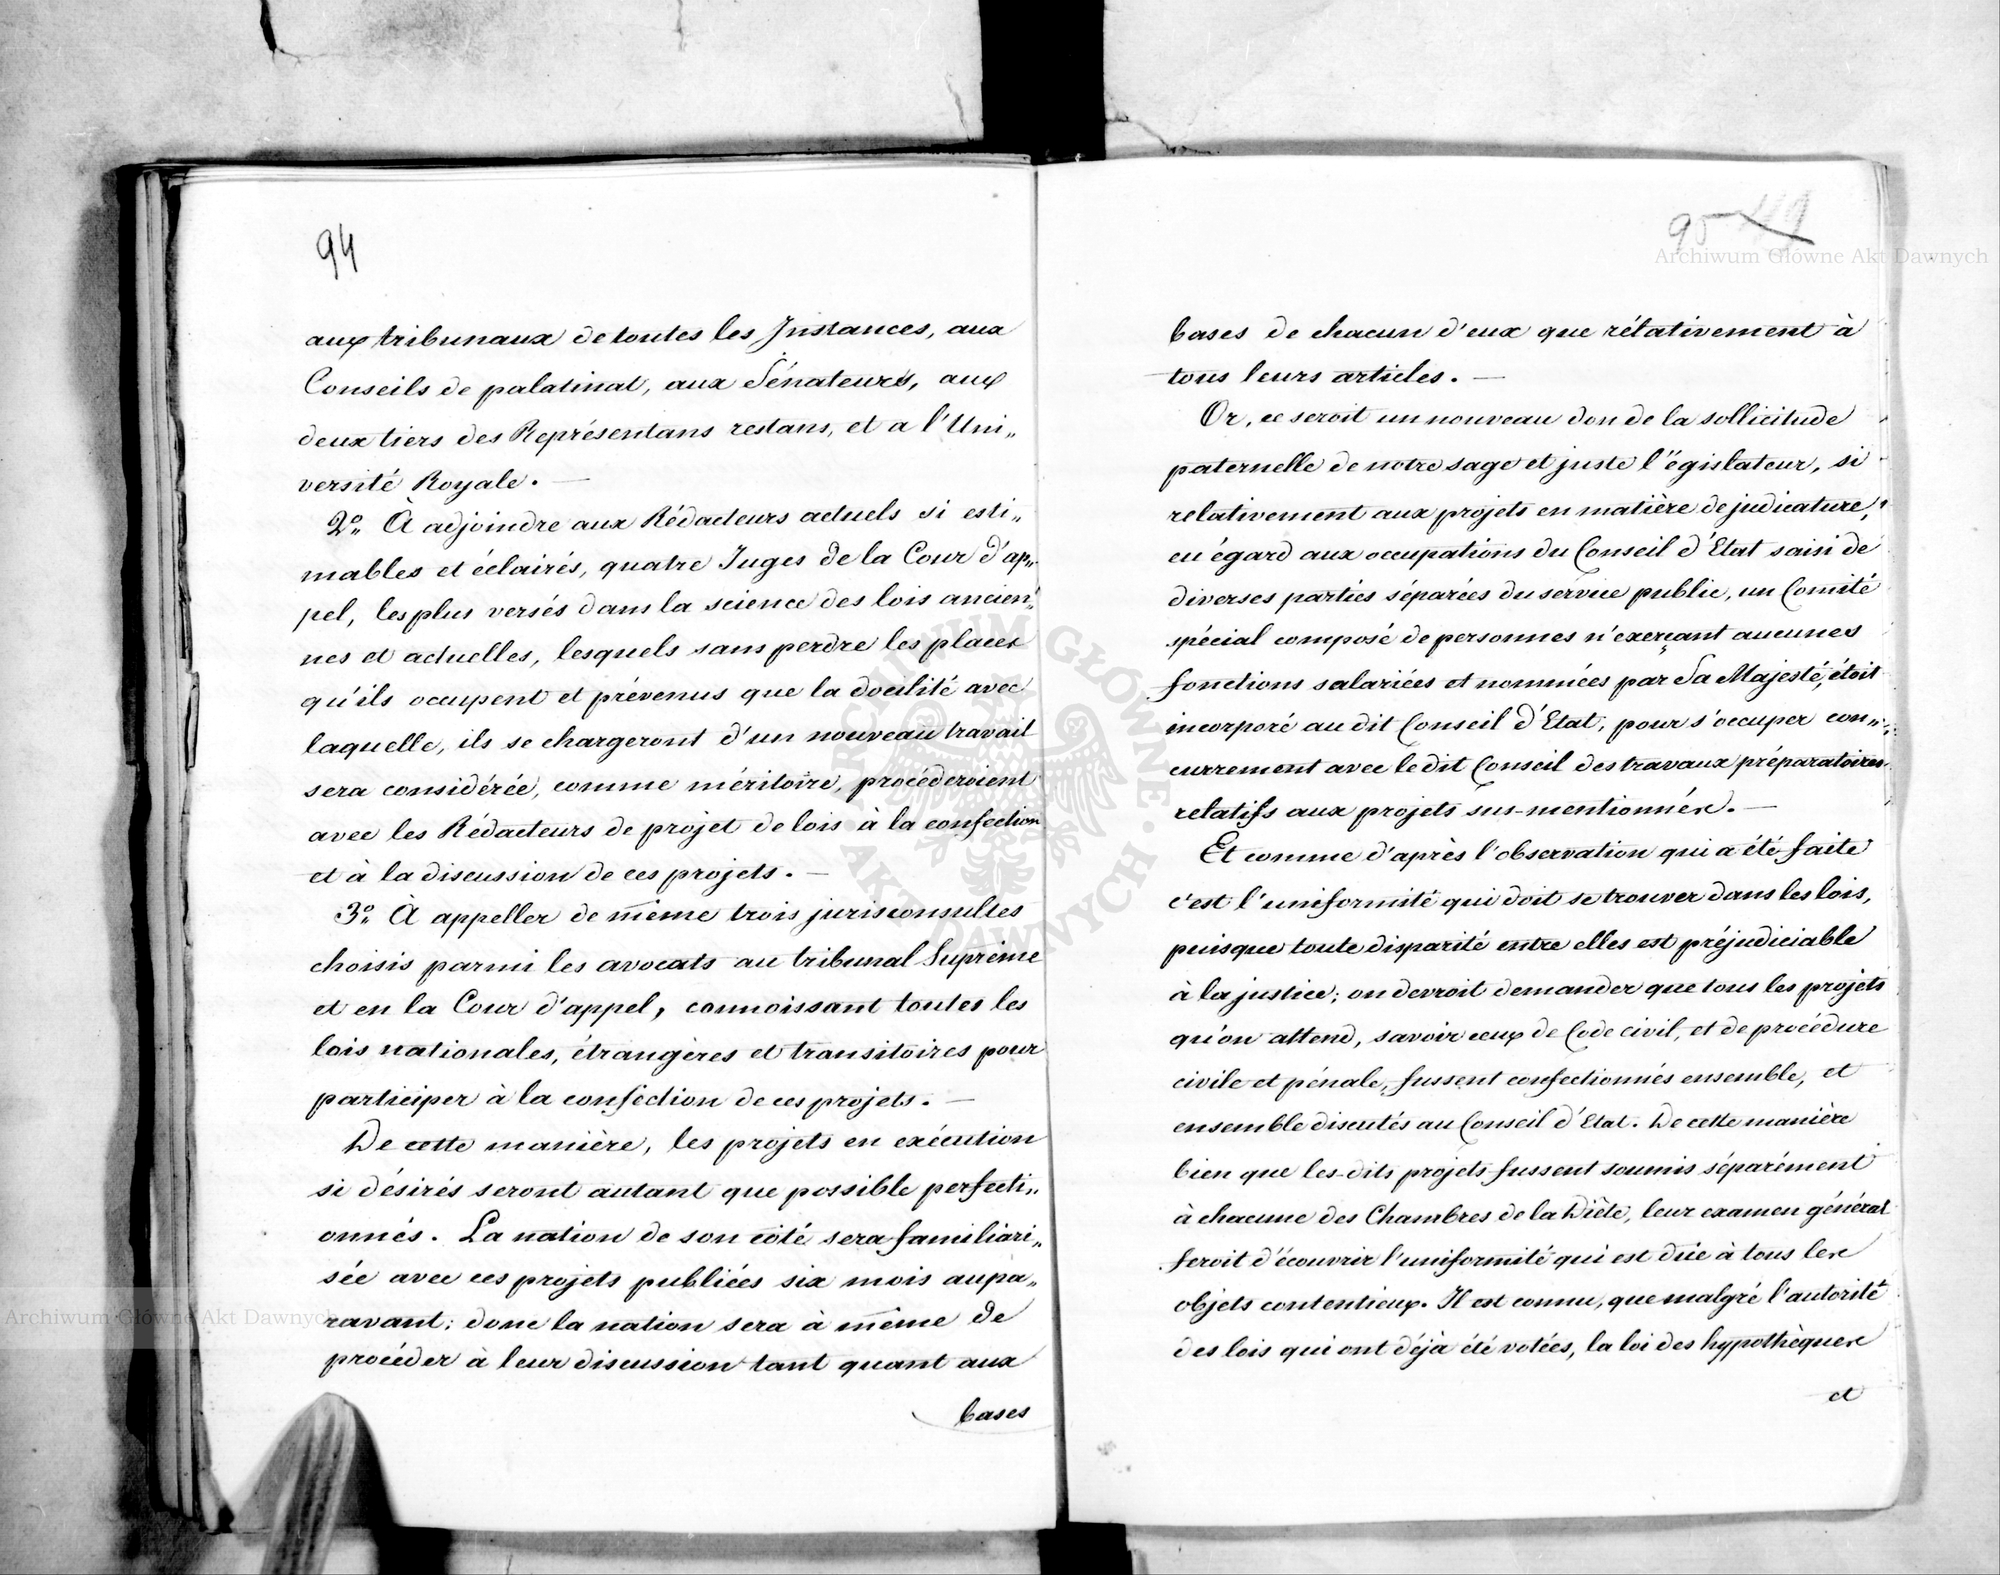 94
aux tribunaux de toutes les Instances, aux
Conseils de palatinat, aux Sénateurs, aux
deux tiers des Représentans restans, et a l'Uni„
versité Royale. —
2º„ À adjoindre aux Rédacteurs actuels si esti„
mables et éclairés, quatre Juges de la Cour d'ap„
pel, les plus versés dans la science des lois ancien„
nes et actuelles, lesquels sans perdre les places
qu'ils occupent et prévenus que la docilité avec
laquelle, ils se chargeront d'un nouveau travail
sera considérée, comme méritoire, procéderoient
avec les Rédacteurs de projet de lois à la confection
et à la discussion de ces projets. —
3º„ À appeller de même trois jurisconsultes
choisis parmi les avocats au tribunal Suprême
et en la Cour d'appel, connoissant toutes les
lois nationales, étrangères et transitoires pour
participer à la confection de ces projets. —
De cette manière, les projets en exécution
si désirés seront autant que possible perfecti„
onnés. La nation de son coté sera familiari„
sée avec ces projets publiées six mois aupa„
ravant; donc la nation sera à même de
procéder à leur discussion tant quant aux
bases
95 49
bases de chacun d'eux que rélativement à
tous leurs articles. —
Or, ce seroit un nouveau don de la sollicitude
paternelle de notre sage et juste l'égislateur, si
relativement aux projets en matière de judicature,
eu égard aux occupations du Conseil d'Etat saisi de
diverses partiés séparées du service public, un Comité
spécial composé de personnes n'exerçant aucunes
fonctions salariées et nommées par Sa Majesté, étoit
incorporé au dit Conseil d'Etat, pour s'occuper con„
curremment avec le dit Conseil des travaux préparatoires
relatifs aux projets sus-mentionnés. —
Et comme d'après l'observation qui a été faite
c'est l'uniformité qui doit se trouver dans les lois,
puisque toute disparité entre elles est préjudiciable
à la justice; on devroit demander que tous les projets
qu'on attend, savoir ceux de Code civil, et de procédure
civile et pénale, fussent confectionnés ensemble, et
ensemble discutés au Conseil d'Etat. De cette manière
bien que les-dits projets fussent soumis séparément
à chacune des Chambres de la Diète, leur examen général
feroit d'écouvrir l'uniformité qui est dûe à tous les
objets contentieux. Il est connu, que malgré l'autorité
des lois qui ont déjà été votées, la loi des hypothèques
et
Archiwum Główne Akt Dawnych
Archiwum Główne Akt Dawnych
ARCHIWUM GŁÓWNE · AKT DAWNYCH ·